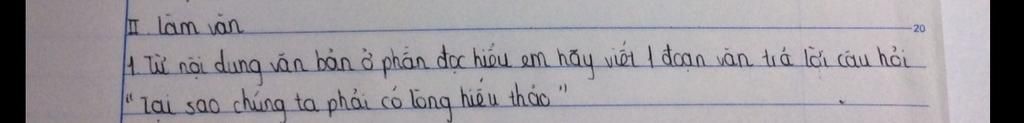 II làm văn
20
1 Từ nội dung văn bản ở phần đọc hiểu em hãy viết 1 đoạn văn trả lời câu hỏi
"Tại sao chúng ta phải có lòng hiếu thảo"